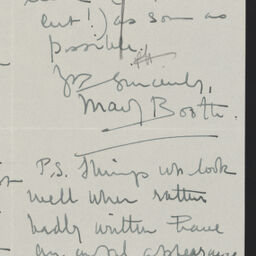 out!) as soon as
possible.
Yrs Sincerely,
Mary Booth.
P.S. Things wh look
well when rather
badly written have
an